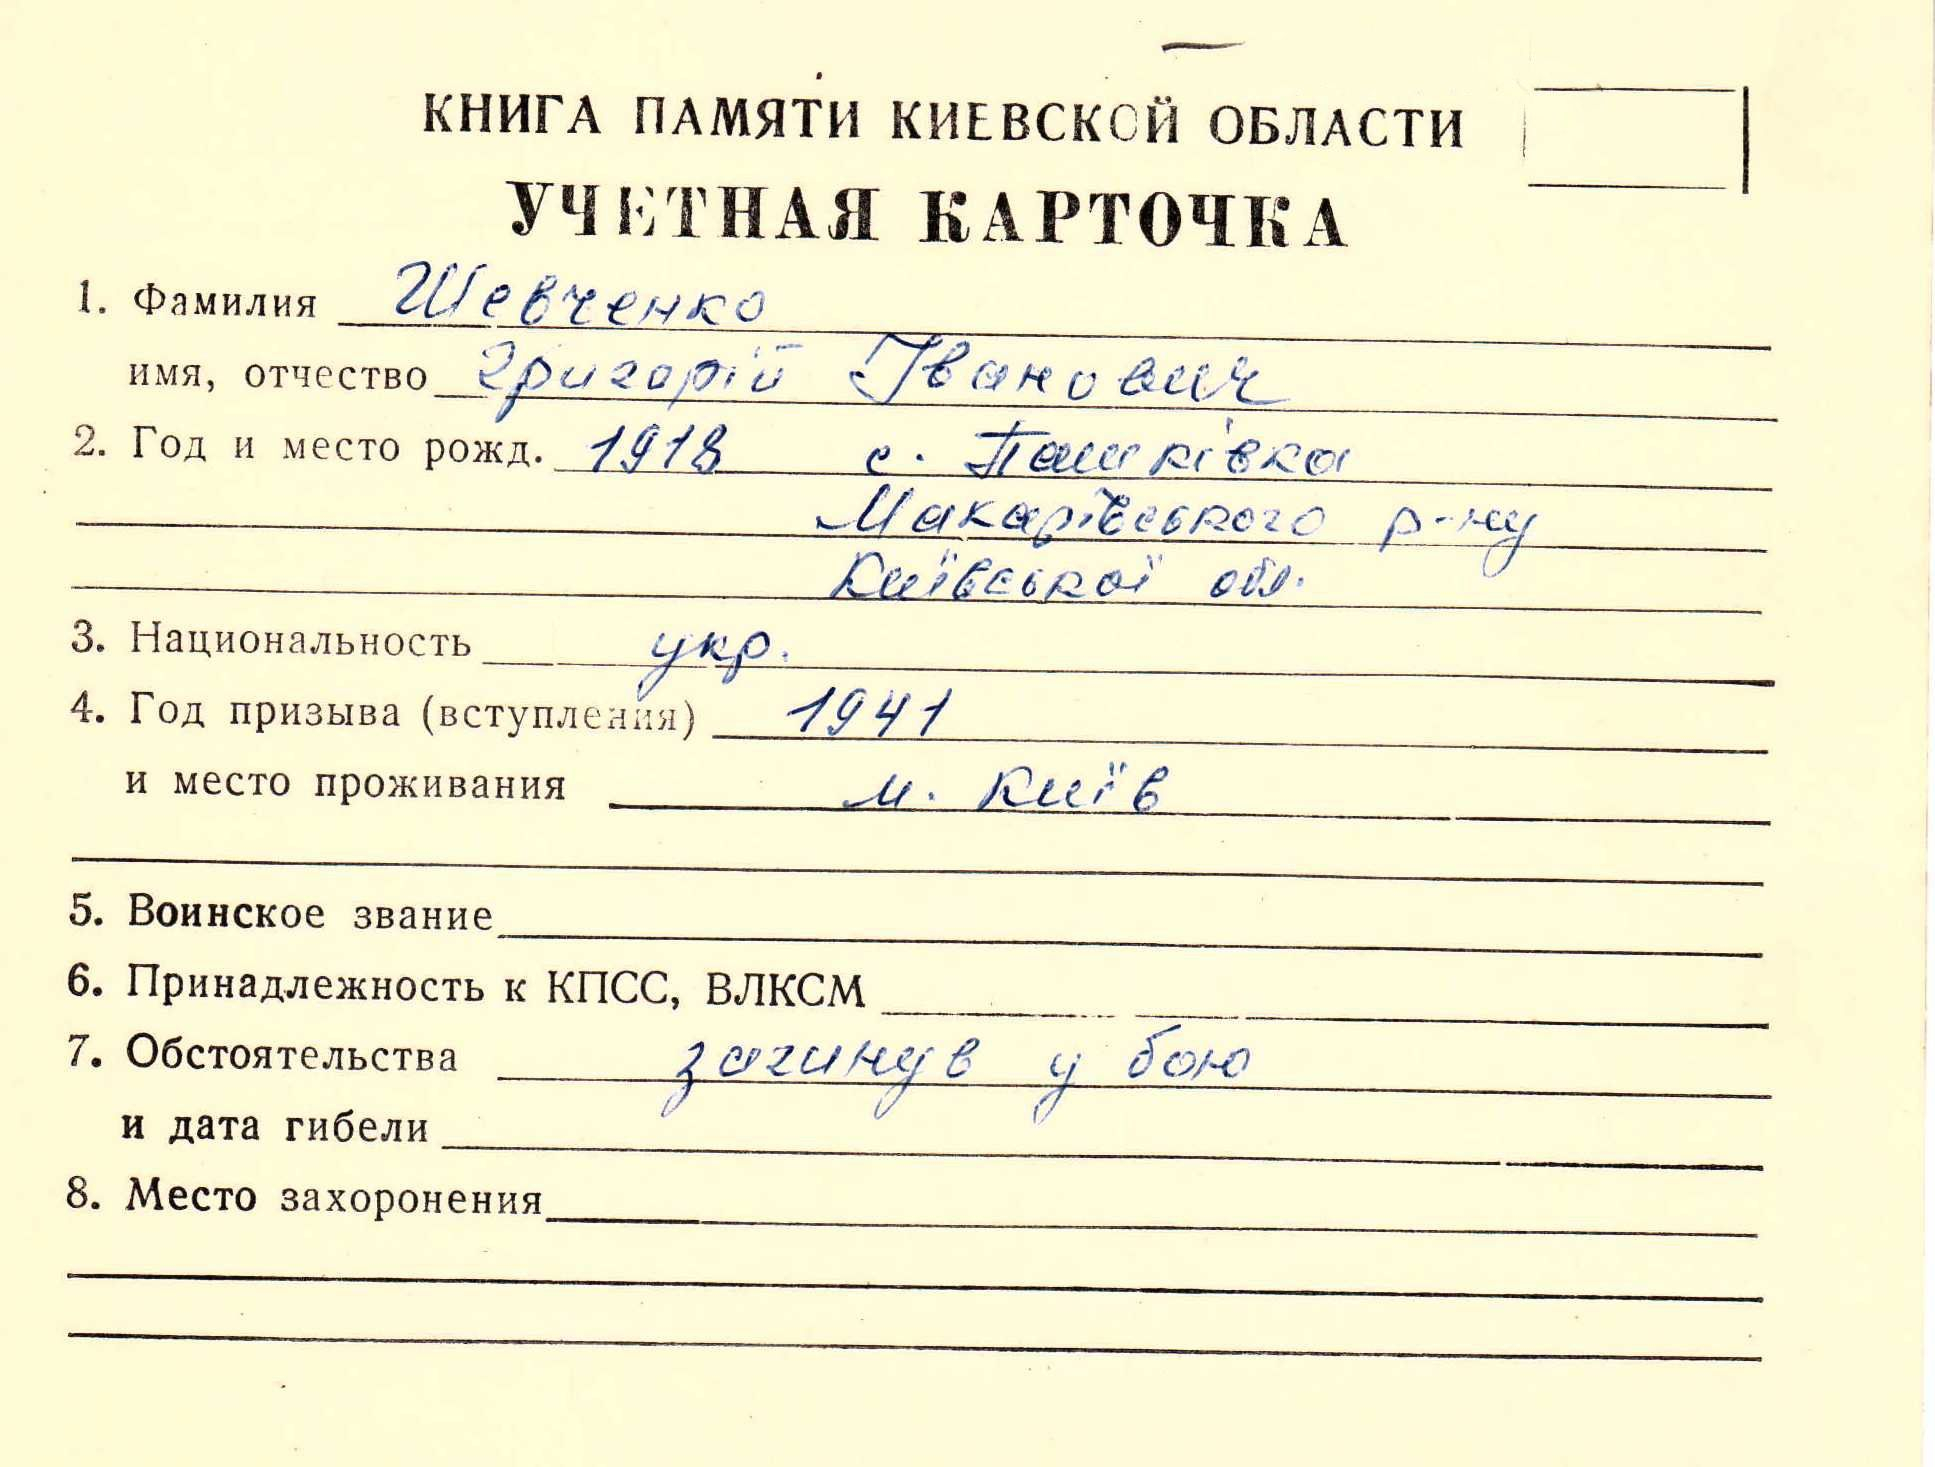 КНИГА ПАМЯТИ КИЕВСКОЙ ОБЛАСТИ
УЧЕТНАЯ КАРТОЧКА
1. Фамилия Шевченко
имя, отчество Григорій Іванович
2. Год и место рожд. 1918 с. Пашківка
Макарівського р-ну
Київської обл.
3. Национальность укр.
4. Год призыва (вступления) 1941
и место проживания м. Київ
5. Воинское звание
6. Принадлежность к КПСС, ВЛКСМ
7. Обстоятельства загинув у бою
и дата гибели
8. Место захоронения